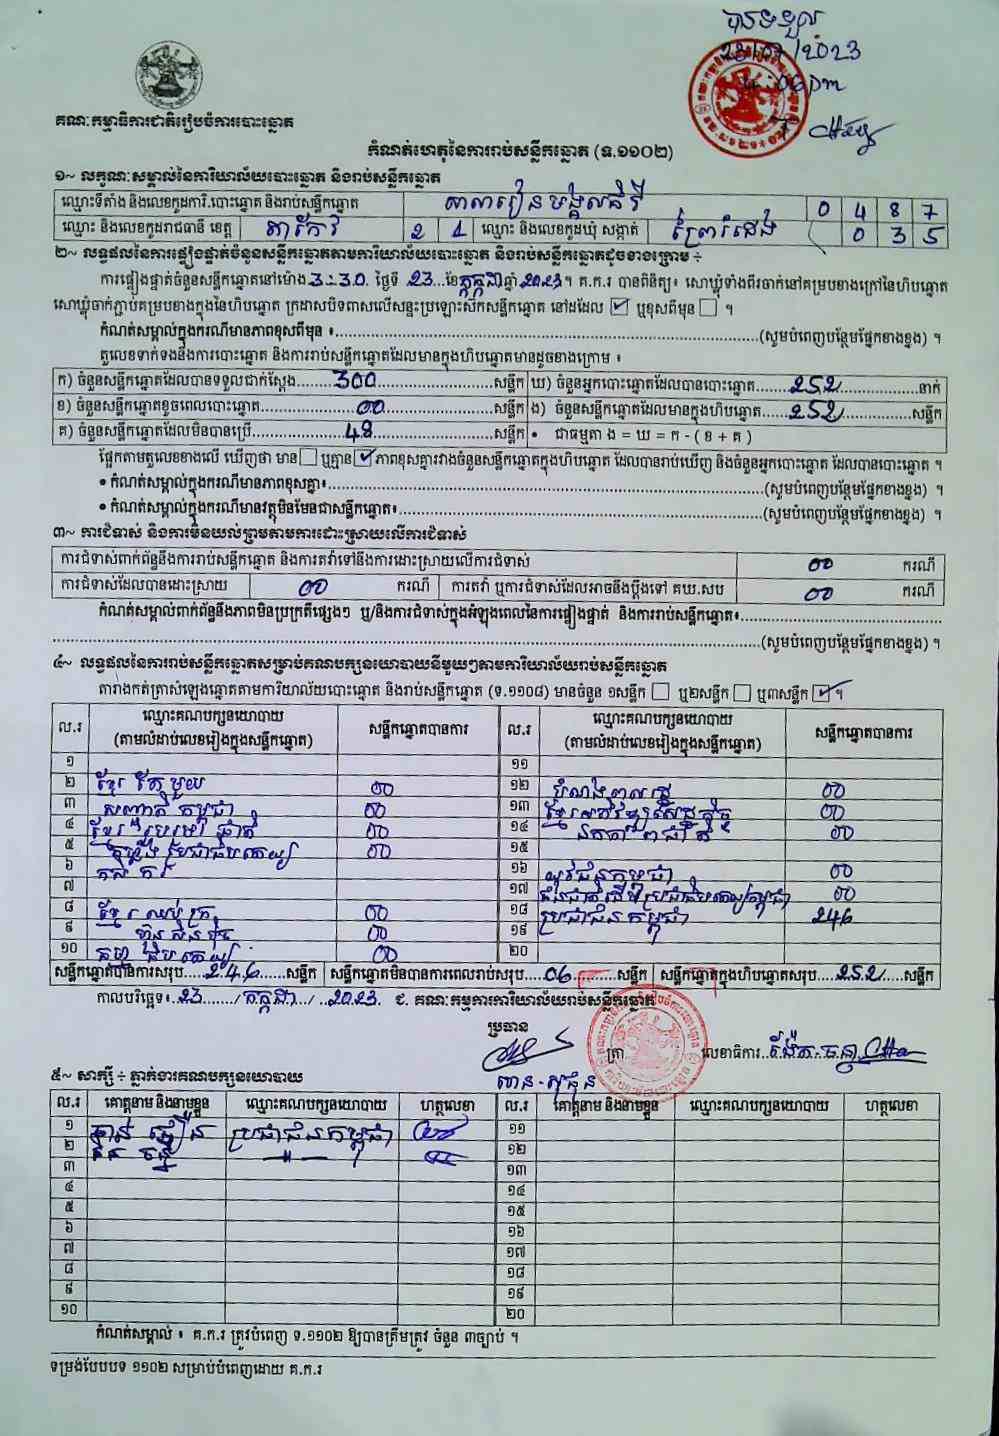 បានទទួល
23/07/2023
គណៈកម្មាធិការជាតិរៀបចំការបោះឆ្នោត
កំណត់ហេតុនៃការរាប់សន្លឹកឆ្នោត (ទ.១១០២)
១~ លក្ខណៈសម្គាល់នៃការិយាល័យបោះឆ្នោត និងរាប់សន្លឹកឆ្នោត
ឈ្មោះទីតាំង និងលេខកូដការិ.បោះឆ្នោត និងរាប់សន្លឹកឆ្នោត សាលារៀន 0 4 8 7
ឈ្មោះ និងលេខកូដរាជធានី ខេត្ត តាកែវ 2 1 ឈ្មោះ និងលេខកូដឃុំ សង្កាត់ 0 3 5
២~ លទ្ធផលនៃការផ្ទៀងផ្ទាត់ចំនួនសន្លឹកឆ្នោតតាមការិយាល័យបោះឆ្នោត និងរាប់សន្លឹកឆ្នោតដូចខាងក្រោម ÷
ការផ្ទៀងផ្ទាត់ចំនួនសន្លឹកឆ្នោតនៅម៉ោង 3:30 ថ្ងៃទី 23 ខែកក្កដា ឆ្នាំ 2023។ គ.ក.រ បានពិនិត្យ៖ សោឃ្លុំទាំងពីរចាក់នៅគម្របខាងក្រៅនៃហិបឆ្នោត
សោឃ្លុំចាក់ភ្ជាប់គម្របខាងក្នុងនៃហិបឆ្នោត ក្រដាសបិទពាសលើសន្ទះប្រឡោះសឹកសន្លឹកឆ្នោត នៅដដែល ☑ ឬខុសពីមុន ☐ ។
កំណត់សម្គាល់ក្នុងករណីមានភាពខុសពីមុន ៖ (សូមបំពេញបន្ថែមផ្នែកខាងខ្នង) ។
តួលេខទាក់ទងនឹងការបោះឆ្នោត និងការរាប់សន្លឹកឆ្នោតដែលមានក្នុងហិបឆ្នោតមានដូចខាងក្រោម ៖
ក) ចំនួនសន្លឹកឆ្នោតដែលបានទទួលជាក់ស្តែង 300 សន្លឹក ឃ) ចំនួនអ្នកបោះឆ្នោតដែលបានបោះឆ្នោត 252 នាក់
ខ) ចំនួនសន្លឹកឆ្នោតខូចពេលបោះឆ្នោត 00 សន្លឹក ង) ចំនួនសន្លឹកឆ្នោតដែលមានក្នុងហិបឆ្នោត 252 សន្លឹក
គ) ចំនួនសន្លឹកឆ្នោតដែលមិនបានប្រើ 48 សន្លឹក • ជាធម្មតា ង = ឃ = ក - ( ខ + គ )
ផ្អែកតាមតួលេខខាងលើ ឃើញថា មាន ☐ ឬគ្មាន ☑ ភាពខុសគ្នារវាងចំនួនសន្លឹកឆ្នោតក្នុងហិបឆ្នោត ដែលបានរាប់ឃើញ និងចំនួនអ្នកបោះឆ្នោត ដែលបានបោះឆ្នោត ។
• កំណត់សម្គាល់ក្នុងករណីមានភាពខុសគ្នា៖ (សូមបំពេញបន្ថែមផ្នែកខាងខ្នង) ។
• កំណត់សម្គាល់ក្នុងករណីមានវត្ថុមិនមែនជាសន្លឹកឆ្នោត៖ (សូមបំពេញបន្ថែមផ្នែកខាងខ្នង) ។
៣~ ការជំទាស់ និងការមិនយល់ព្រមតាមការដោះស្រាយលើការជំទាស់
ការជំទាស់ពាក់ព័ន្ធនឹងការរាប់សន្លឹកឆ្នោត និងការតវ៉ាទៅនឹងការដោះស្រាយលើការជំទាស់ 00 ករណី
ការជំទាស់ដែលបានដោះស្រាយ 00 ករណី ការតវ៉ា ឬការជំទាស់ដែលអាចនឹងប្តឹងទៅ គឃ.សប 00 ករណី
កំណត់សម្គាល់ពាក់ព័ន្ធនឹងភាពមិនប្រក្រតីផ្សេងៗ ឬ/និងការជំទាស់ក្នុងអំឡុងពេលនៃការផ្ទៀងផ្ទាត់ និងការរាប់សន្លឹកឆ្នោត៖
(សូមបំពេញបន្ថែមផ្នែកខាងខ្នង) ។
៤~ លទ្ធផលនៃការរាប់សន្លឹកឆ្នោតសម្រាប់គណបក្សនយោបាយនីមួយៗតាមការិយាល័យរាប់សន្លឹកឆ្នោត
តារាងកត់ត្រាសំឡេងឆ្នោតតាមការិយាល័យបោះឆ្នោត និងរាប់សន្លឹកឆ្នោត (ទ.១១០៨) មានចំនួន ១សន្លឹក ☐ ឬ២សន្លឹក ☐ ឬ៣សន្លឹក ☑ ។
ល.រ ឈ្មោះគណបក្សនយោបាយ (តាមលំដាប់លេខរៀងក្នុងសន្លឹកឆ្នោត) សន្លឹកឆ្នោតបានការ ល.រ ឈ្មោះគណបក្សនយោបាយ (តាមលំដាប់លេខរៀងក្នុងសន្លឹកឆ្នោត) សន្លឹកឆ្នោតបានការ
១ ១១
២ ខ្មែរតែមួយ 00 ១២ 00
៣ សញ្ជាតិកម្ពុជា 00 ១៣ 00
៤ 00 ១៤ 00
៥ ប្រជាធិបតេយ្យ 00 ១៥
៦ កសិករ ១៦ យុវជនកម្ពុជា 00
៧ ១៧ 00
៨ ខ្មែរឈប់ក្រ 00 ១៨ ប្រជាជនកម្ពុជា 246
៩ ហ្វ៊ុនស៊ិនប៉ិច 00 ១៩
១០ 00 ២០
សន្លឹកឆ្នោតបានការសរុប 246 សន្លឹក សន្លឹកឆ្នោតមិនបានការពេលរាប់សរុប 06 សន្លឹក សន្លឹកឆ្នោតក្នុងហិបឆ្នោតសរុប 252 សន្លឹក
កាលបរិច្ឆេទ៖ 23 / កក្កដា / 2023 ជ. គណៈកម្មការការិយាល័យរាប់សន្លឹកឆ្នោត
ប្រធាន
ត្រា លេខាធិការ
៥~ សាក្សី ÷ ភ្នាក់ងារគណបក្សនយោបាយ
ល.រ គោត្តនាម និងនាមខ្លួន ឈ្មោះគណបក្សនយោបាយ ហត្ថលេខា ល.រ គោត្តនាម និងនាមខ្លួន ឈ្មោះគណបក្សនយោបាយ ហត្ថលេខា
១ ប្រជាជនកម្ពុជា ១១
២ ១២
៣ ១៣
៤ ១៤
៥ ១៥
៦ ១៦
៧ ១៧
៨ ១៨
៩ ១៩
១០ ២០
កំណត់សម្គាល់ ៖ គ.ក.រ ត្រូវបំពេញ ទ.១១០២ ឱ្យបានត្រឹមត្រូវ ចំនួន ៣ច្បាប់ ។
ទម្រង់បែបបទ ១១០២ សម្រាប់បំពេញដោយ គ.ក.រ